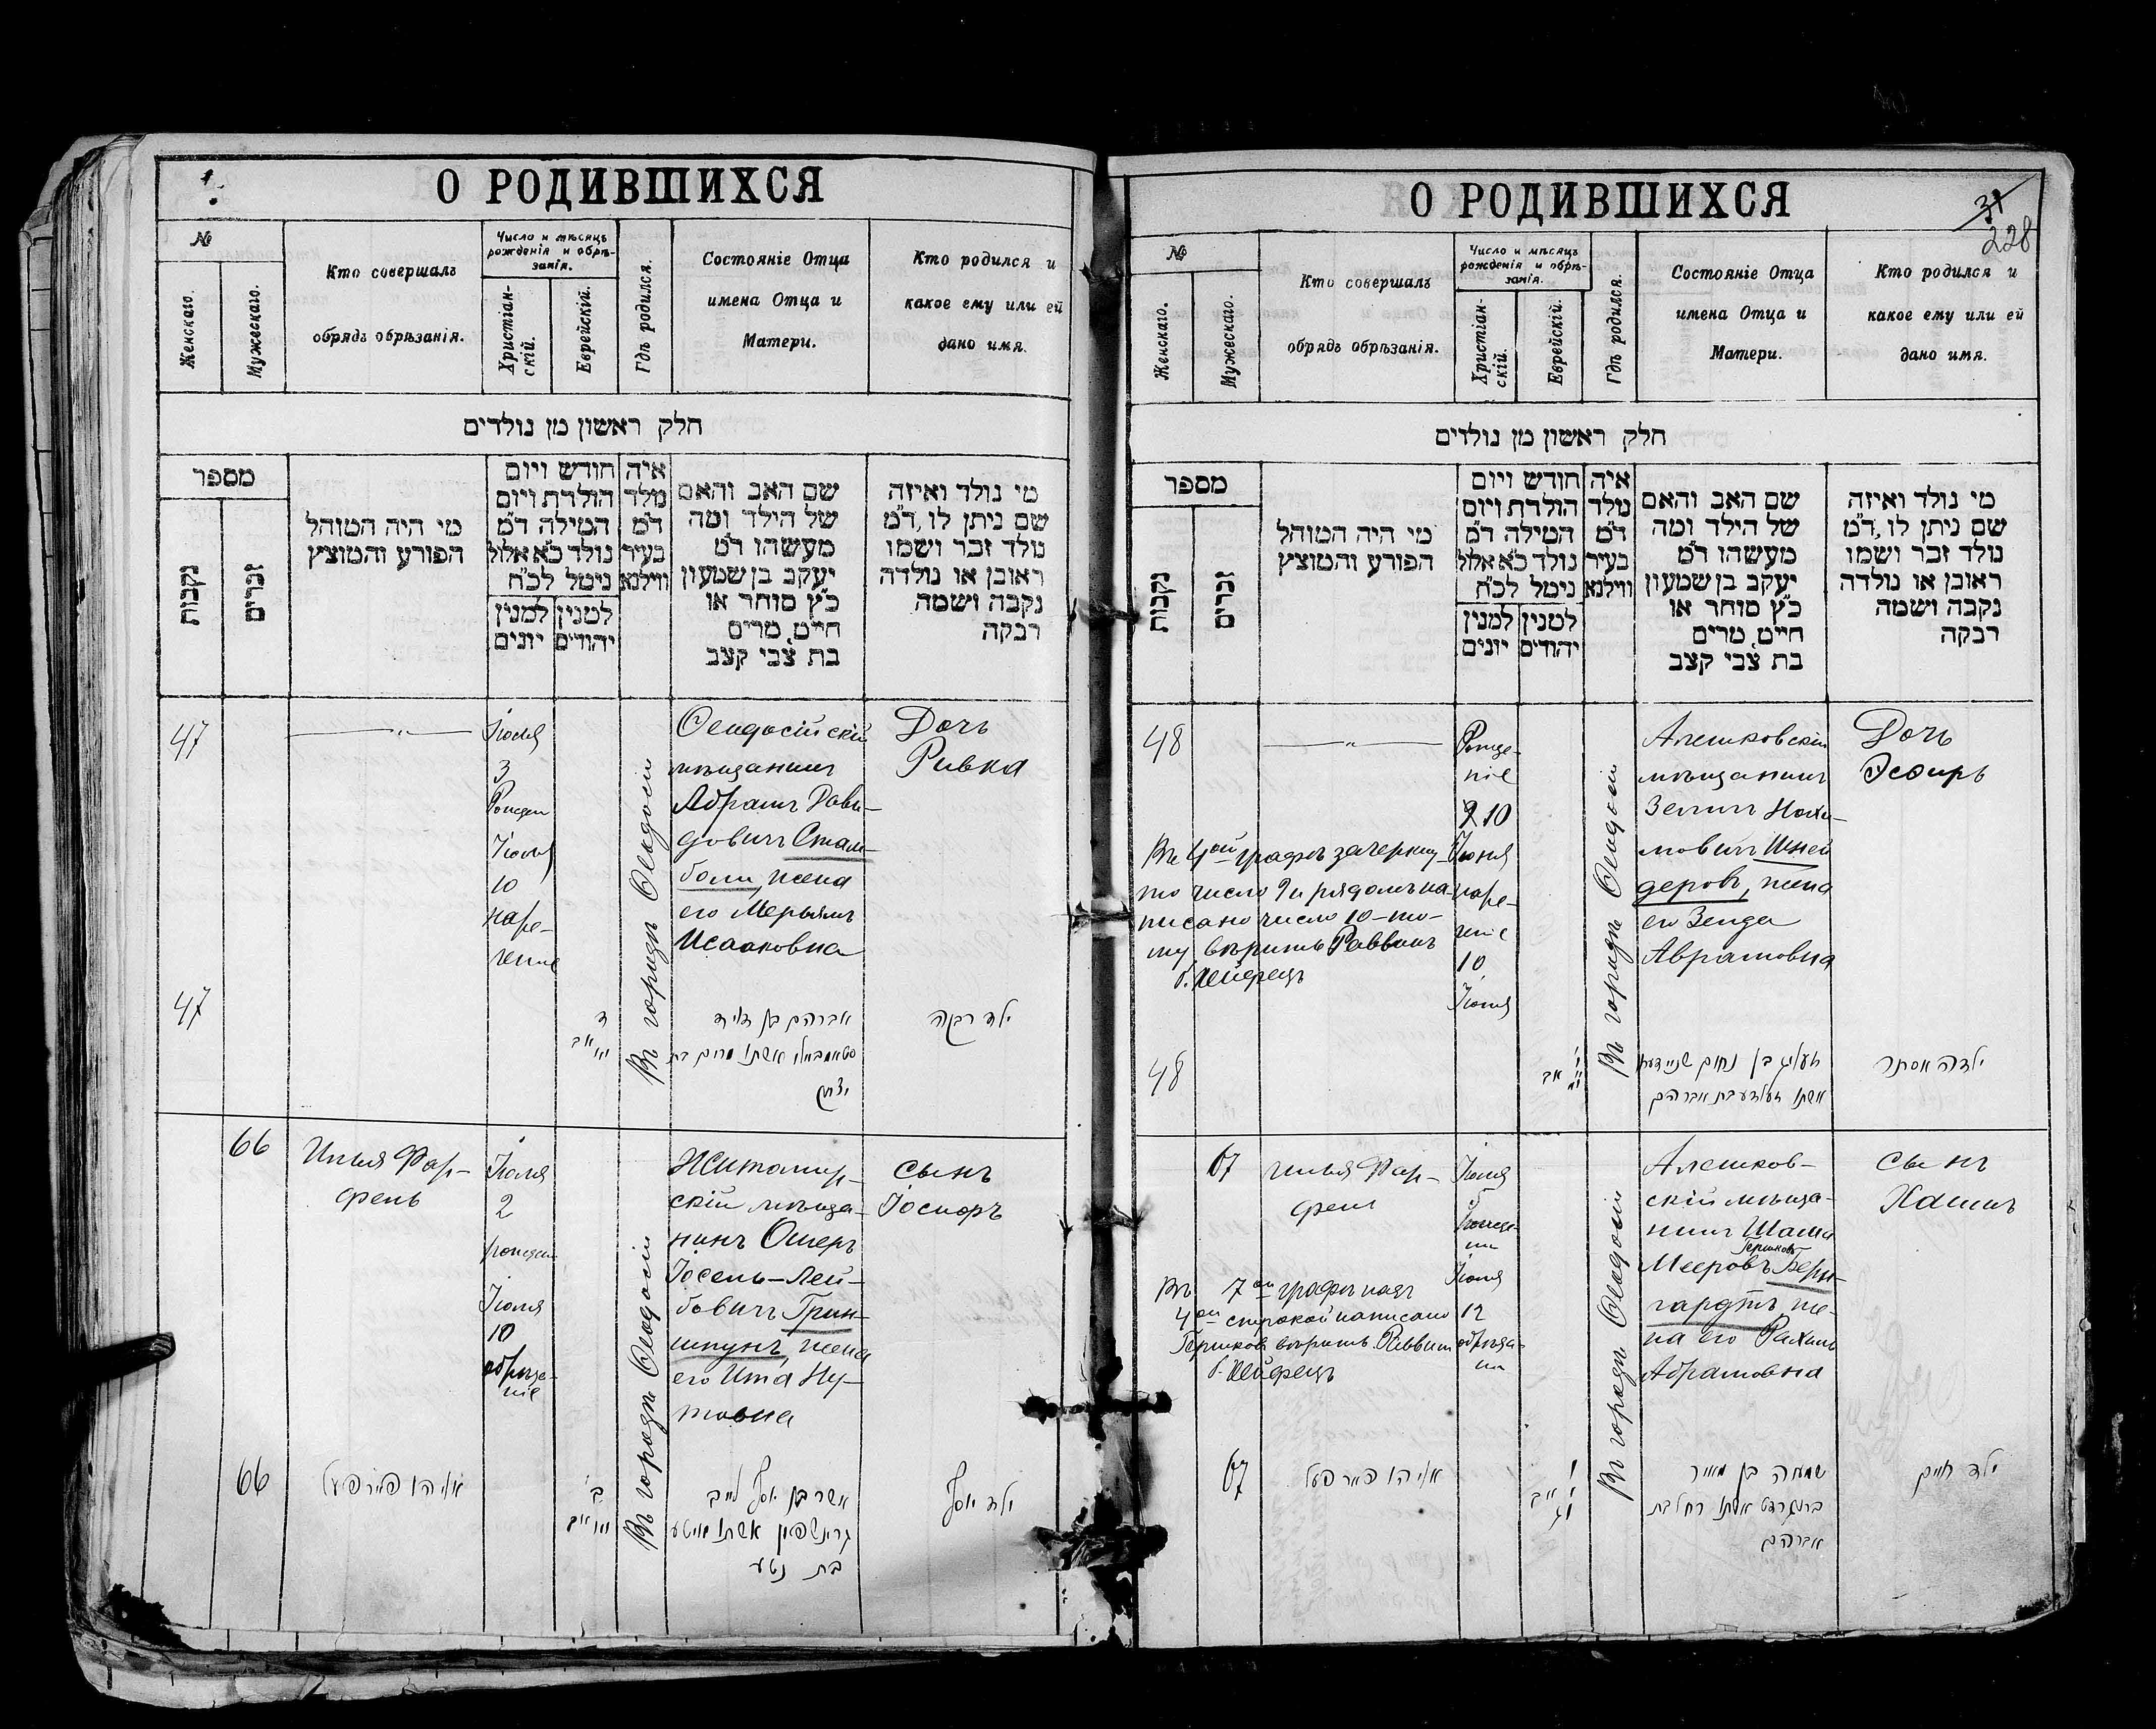 О РОДИВШИХСЯ
№
Женскаго.
Мужескаго.
Кто совершалъ
обрядъ обрѣзанія.
Число и мѣсяцъ
рожденія и обрѣ-
занія.
Христіан-
скій.
Еврейскій.
Гдѣ родился.
Состояніе Отца
имена Отца и
Матери.
Кто родился и
какое ему или ей
дано имя.
חלק ראשון מן נולדים
מספר
נקבות
זכרים
מי היה המוהל
הפורע והמוצץ
חודש ויום
הולדת ויום
המילה ד״מ
נולד כ״א אלול
ניטל לכ״ח
למנין
יונים
למנין
יהודים
איה
נולד
ד״מ
בעיר
ווילנא
שם האב והאם
של הילד ומה
מעשהו ד״מ
יעקב בן שמעון
כ״ץ סוחר או
חייט, מרים
בת צבי קצב
מי נולד ואיזה
שם ניתן לו, ד״מ
נולד זכר ושמו
ראובן או נולדה
נקבה ושמה
רבקה
47
Іюля
3
Рожден
Іюля
10
наре-
ченіе
Въ городѣ Ѳеодосіи
Ѳеодосійскій
мѣщанинъ
Абрамъ Дави-
довичъ Стам-
боли, жена
его Мерьямъ
Исааковна
Дочь
Ривка
47
אברהם בן דויד
סטאמבולי אשתו מרים בת
יצחק
ילד רבקה
66
Илья Фар-
фель
Іюля
2
рожден
Іюля
10
обрѣза-
ніе
Въ городѣ Ѳеодосіи
Житомир-
скій мѣща-
нинъ Ошеръ
Іосель-Лей-
бовичъ Грин-
шпунъ, жена
его Ита Ну-
товна
сынъ
Іосифъ
66
אליהו פארפעל
אשר בן יוסף לייב
גרינשפון אשתו איטע
בת נטע
ילד יוסף
О РОДИВШИХСЯ
31
228
№
Женскаго.
Мужескаго.
Кто совершалъ
обрядъ обрѣзанія.
Число и мѣсяцъ
рожденія и обрѣ-
занія.
Христіан-
скій.
Еврейскій.
Гдѣ родился.
Состояніе Отца
имена Отца и
Матери.
Кто родился и
какое ему или ей
дано имя.
חלק ראשון מן נולדים
מספר
נקבות
זכרים
מי היה המוהל
הפורע והמוצץ
חודש ויום
הולדת ויום
המילה ד״מ
נולד כ״א אלול
ניטל לכ״ח
למנין
יונים
למנין
יהודים
איה
נולד
ד״מ
בעיר
ווילנא
שם האב והאם
של הילד ומה
מעשהו ד״מ
יעקב בן שמעון
כ״ץ סוחר או
חייט, מרים
בת צבי קצב
מי נולד ואיזה
שם ניתן לו, ד״מ
נולד זכר ושמו
ראובן או נולדה
נקבה ושמה
רבקה
48
Рожде-
ніе
9 10
Іюня
наре-
ченіе
10
Іюля
Въ 4ой графѣ зачеркну-
то число 9 и рядомъ на-
писано число 10-то-
му вѣритъ Раввинъ
Въ городѣ Ѳеодосіи
Алешковскій
мѣщанинъ
Зеликъ Нохи-
мовичъ Шней
деровъ, жена
его Зелда
Аврамовна
Дочь
Эсѳирь
48
זעליג בן נחום שניידער
אשתו זעלדע בת אברהם
ילדה אסתר
67
Илья Фар-
фель
Іюля
5
рожде-
ни
Іюля
12
обрѣза-
ни
Въ 7ой графѣ надъ
4ой строкой написано
Гершковъ вѣритъ Раввинъ
Въ городѣ Ѳеодосіи
Алешков-
скій мѣща-
нинъ Шама
Гершковъ
Мееровъ Берн-
гардтъ, же-
на его Рахиль
Абрамовна
сынъ
Хаимъ
67
אליהו פארפעל
שמעיה בן מאיר
ברנגרדט אשתו רחל בת
אברהם
ילד חיים